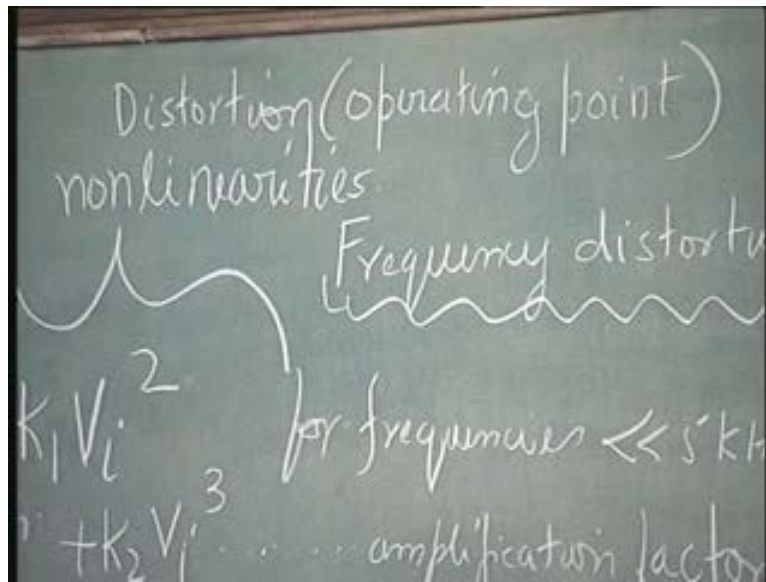 Distortion (operating point)
nonlinearities
Frequency distorti
K₁Vᵢ² for frequencies << 5 kH
+K₂Vᵢ³ ....... amplification factor